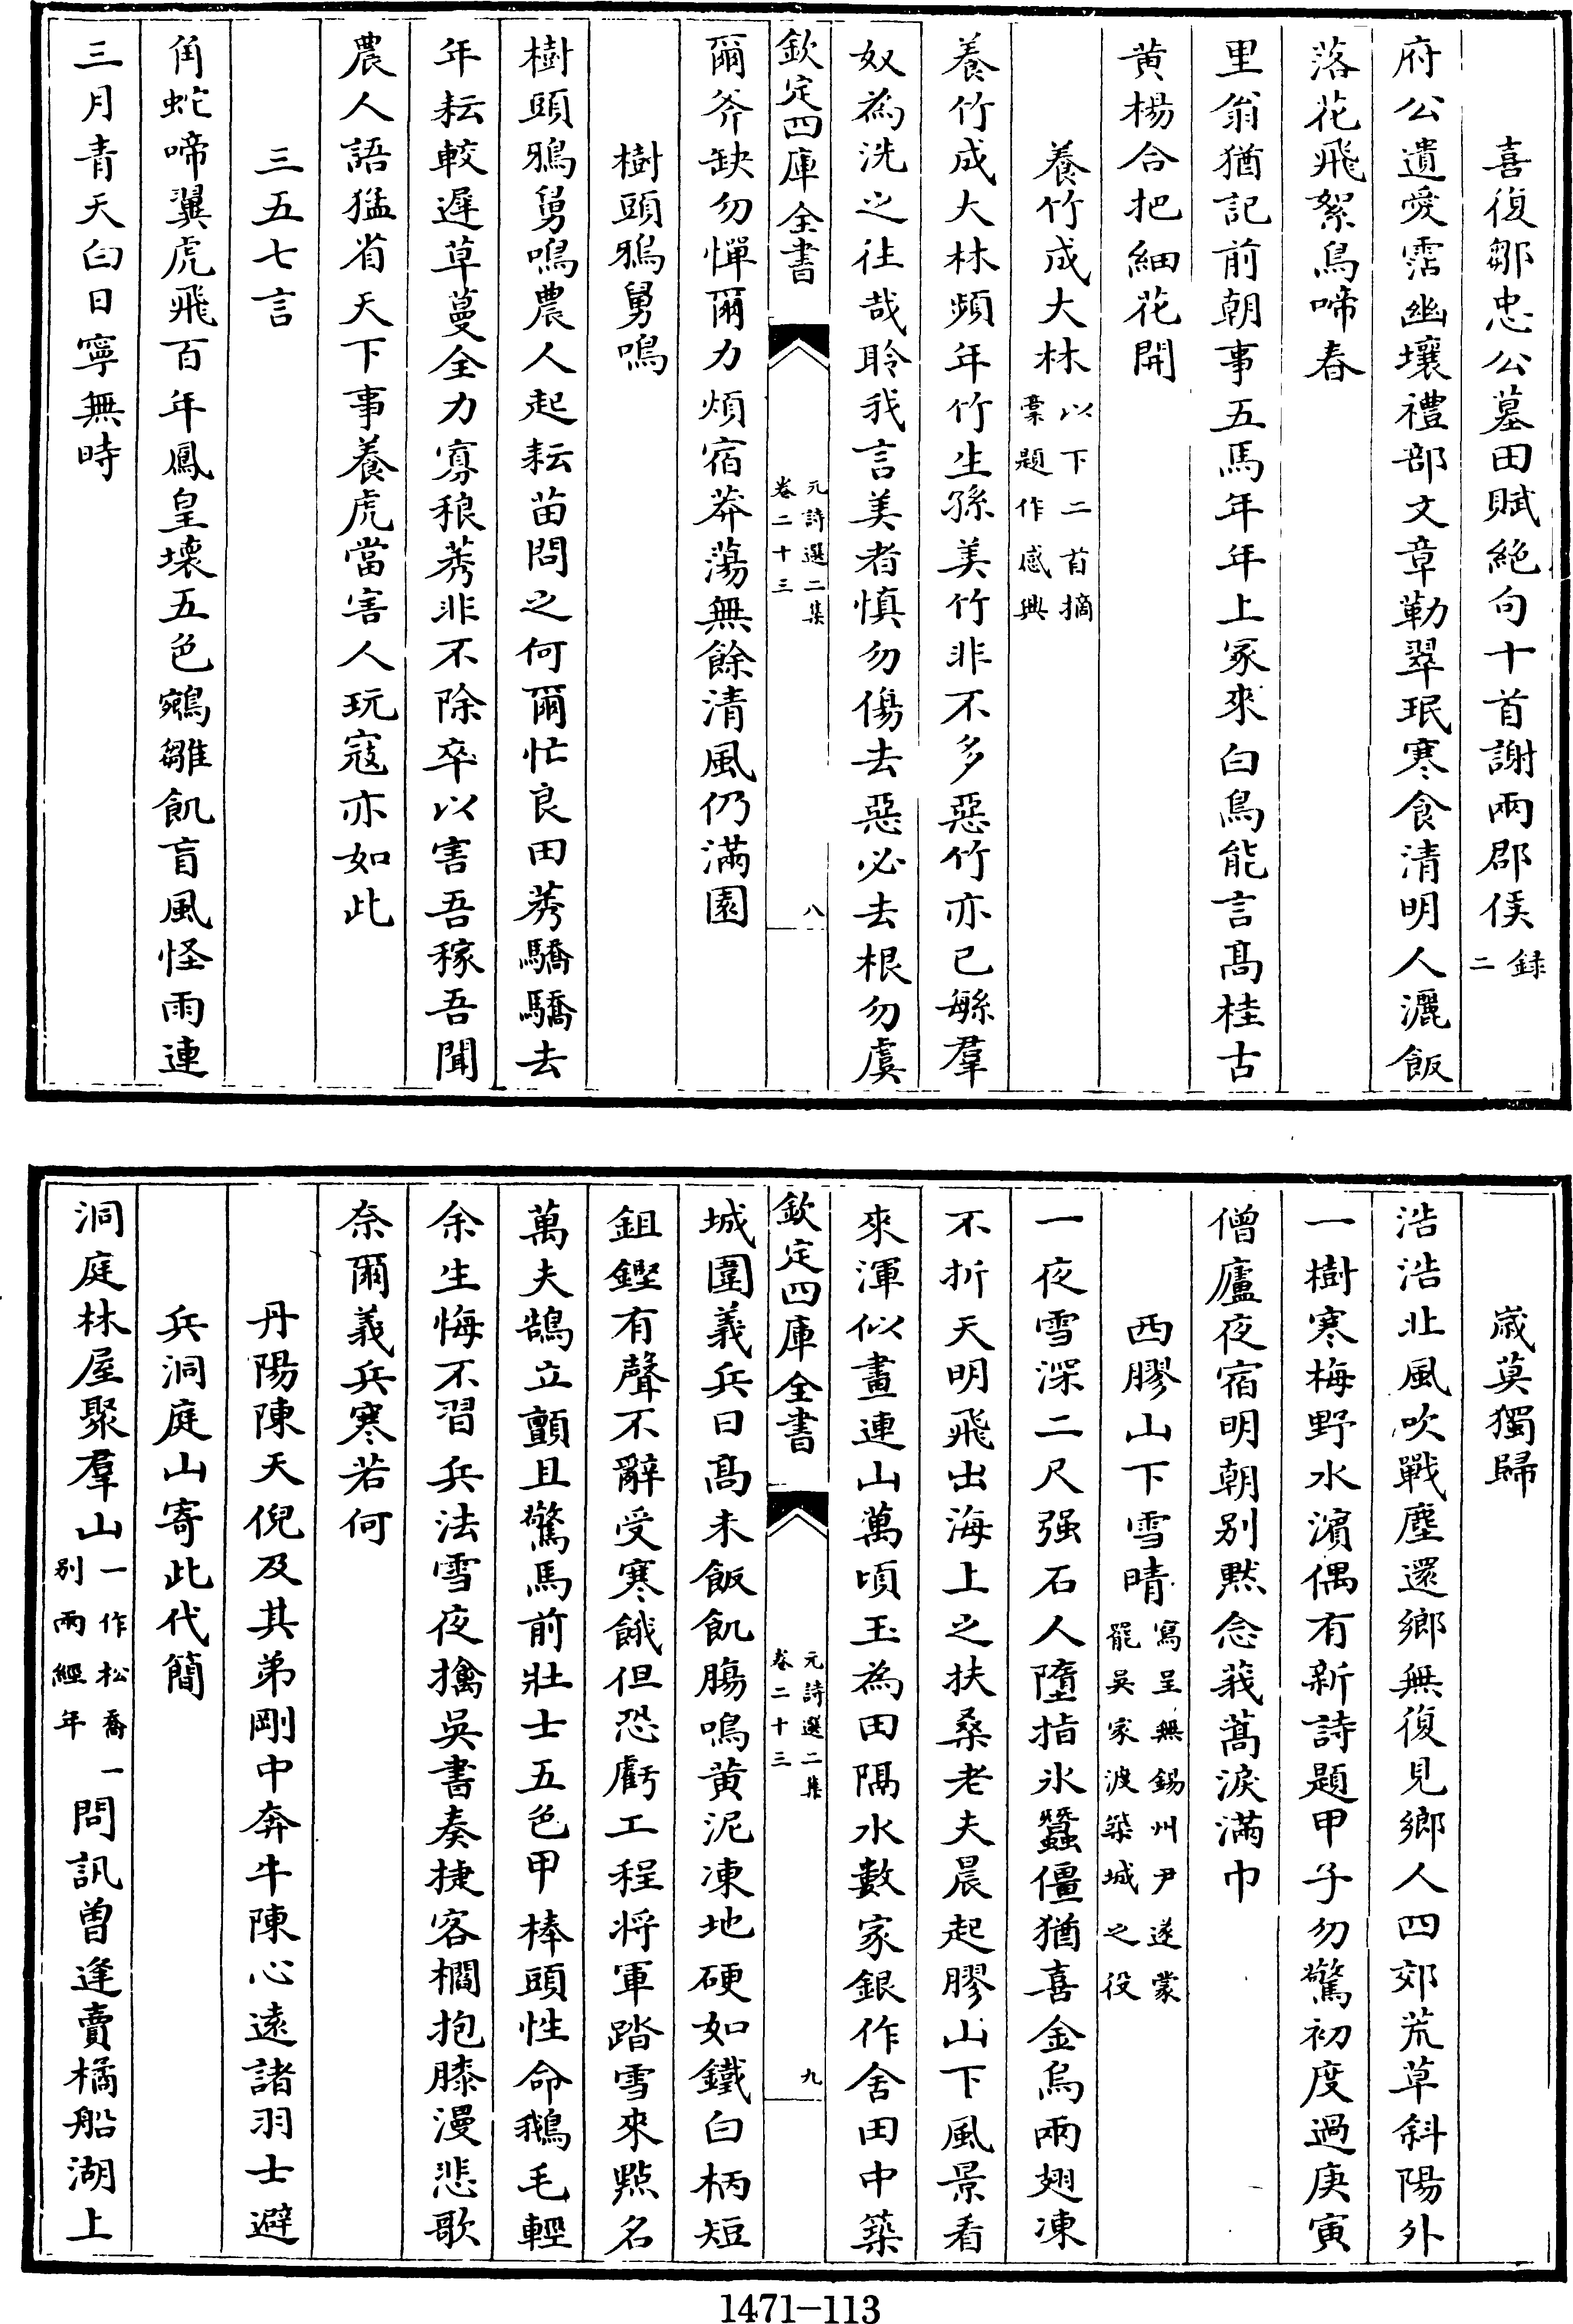 喜復鄒忠公墓田賦絶句十首謝兩郡侯録二
府公遺愛霑幽壤禮部文章勒翠珉寒食清明人灑飯
落花飛絮鳥啼春
里翁猶記前朝事五馬年年上冢來白鳥能言髙桂古
黄楊合把細花開
養竹成大林以下二首摘槀題作感興
養竹成大林頻年竹生孫美竹非不多惡竹亦已緐羣
奴為洗之往哉聆我言美者慎勿傷去惡必去根勿虞
欽定四庫全書
元詩選二集
卷二十三
八
爾斧缺勿憚爾力煩宿莽蕩無餘清風仍滿園
樹頭鴉舅鳴
樹頭鴉舅鳴農人起耘苗問之何爾忙良田莠驕驕去
年耘較遲草蔓全力寡稂莠非不除卒以害吾稼吾聞
農人語猛省天下事養虎當害人玩寇亦如此
三五七言
角蛇啼翼虎飛百年鳳皇壞五色鵷雛飢盲風怪雨連
三月青天白日寧無時
歳莫獨歸
浩浩北風吹戰塵還鄉無復見鄉人四郊荒草斜陽外
一樹寒梅野水濵偶有新詩題甲子勿驚初度過庚寅
僧廬夜宿明朝别黙念莪蒿淚滿巾
西膠山下雪晴寫呈無錫州尹遂蒙罷吳家渡築城之役
一夜雪深二尺强石人墮指氷蠶僵猶喜金烏兩翅凍
不折天明飛出海上之扶桑老夫晨起膠山下風景看
來渾似畫連山萬頃玉為田隔水數家銀作舍田中築
欽定四庫全書
元詩選二集
卷二十三
九
城圍義兵日髙未飯飢腸鳴黄泥凍地硬如鐵白柄短
鉏鏗有聲不辭受寒餓但恐虧工程将軍踏雪來㸃名
萬夫鵠立顫且驚馬前壯士五色甲棒頭性命鵝毛輕
余生悔不習兵法雪夜擒吳書奏捷客櫩抱膝漫悲歌
奈爾義兵寒若何
丹陽陳天倪及其弟剛中奔牛陳心遠諸羽士避
兵洞庭山寄此代簡
洞庭林屋聚羣山一作松喬一别兩經年問訊曽逢賣橘船湖上
1471-113